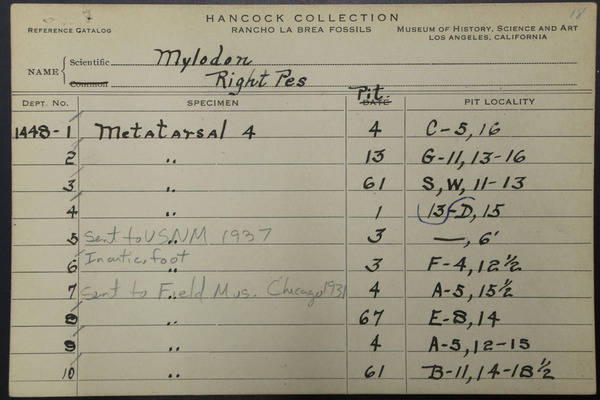 HANCOCK COLLECTION 18
REFERENCE CATALOG RANCHO LA BREA FOSSILS MUSEUM OF HISTORY, SCIENCE AND ART
LOS ANGELES, CALIFORNIA
NAME { Scientific Mylodon
Common Right Pes
DEPT. NO. SPECIMEN Pit. DATE PIT LOCALITY
1448-1 Metatarsal 4 4 C-5, 16
2 " 13 G-11, 13-16
3 " 61 S, W, 11-13
4 " 1 13-D, 15
5 Sent to USNM 1937 " 3 —, 6'
6 In artic. foot " 3 F-4, 12½
7 Sent to Field Mus. Chicago 1931 " 4 A-5, 15½
8 " 67 E-8, 14
9 " 4 A-5, 12-15
10 " 61 B-11, 14-18½